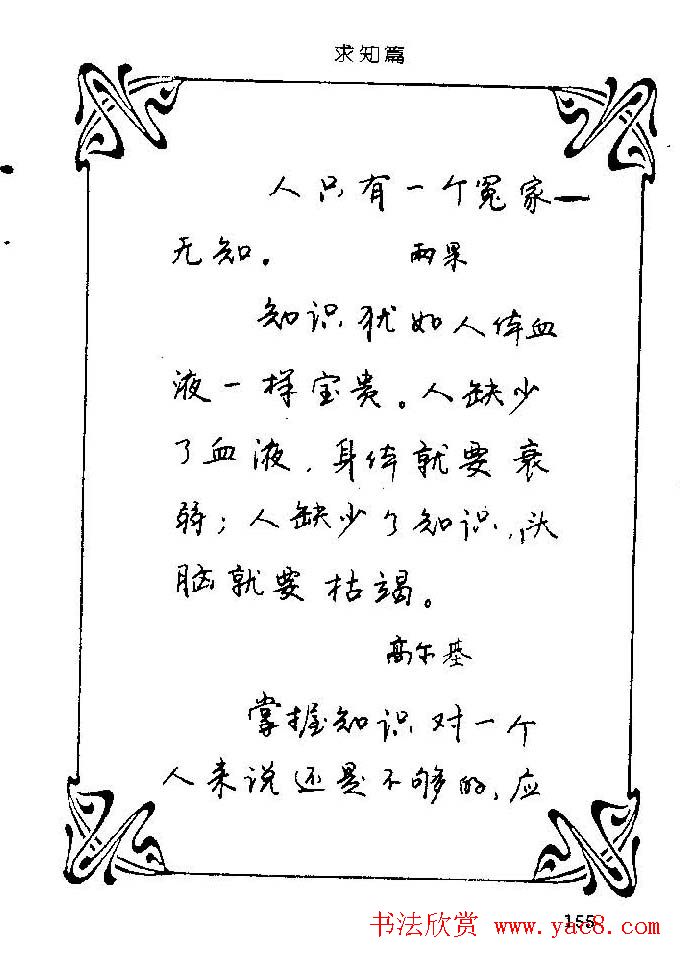 求知篇
人只有一个冤家——
无知。 雨果
知识犹如人体血
液一样宝贵。人缺少
了血液，身体就要衰
弱；人缺少了知识，头
脑就要枯竭。
高尔基
掌握知识对一个
人来说还是不够的，应
155
书法欣赏 www.yac8.com